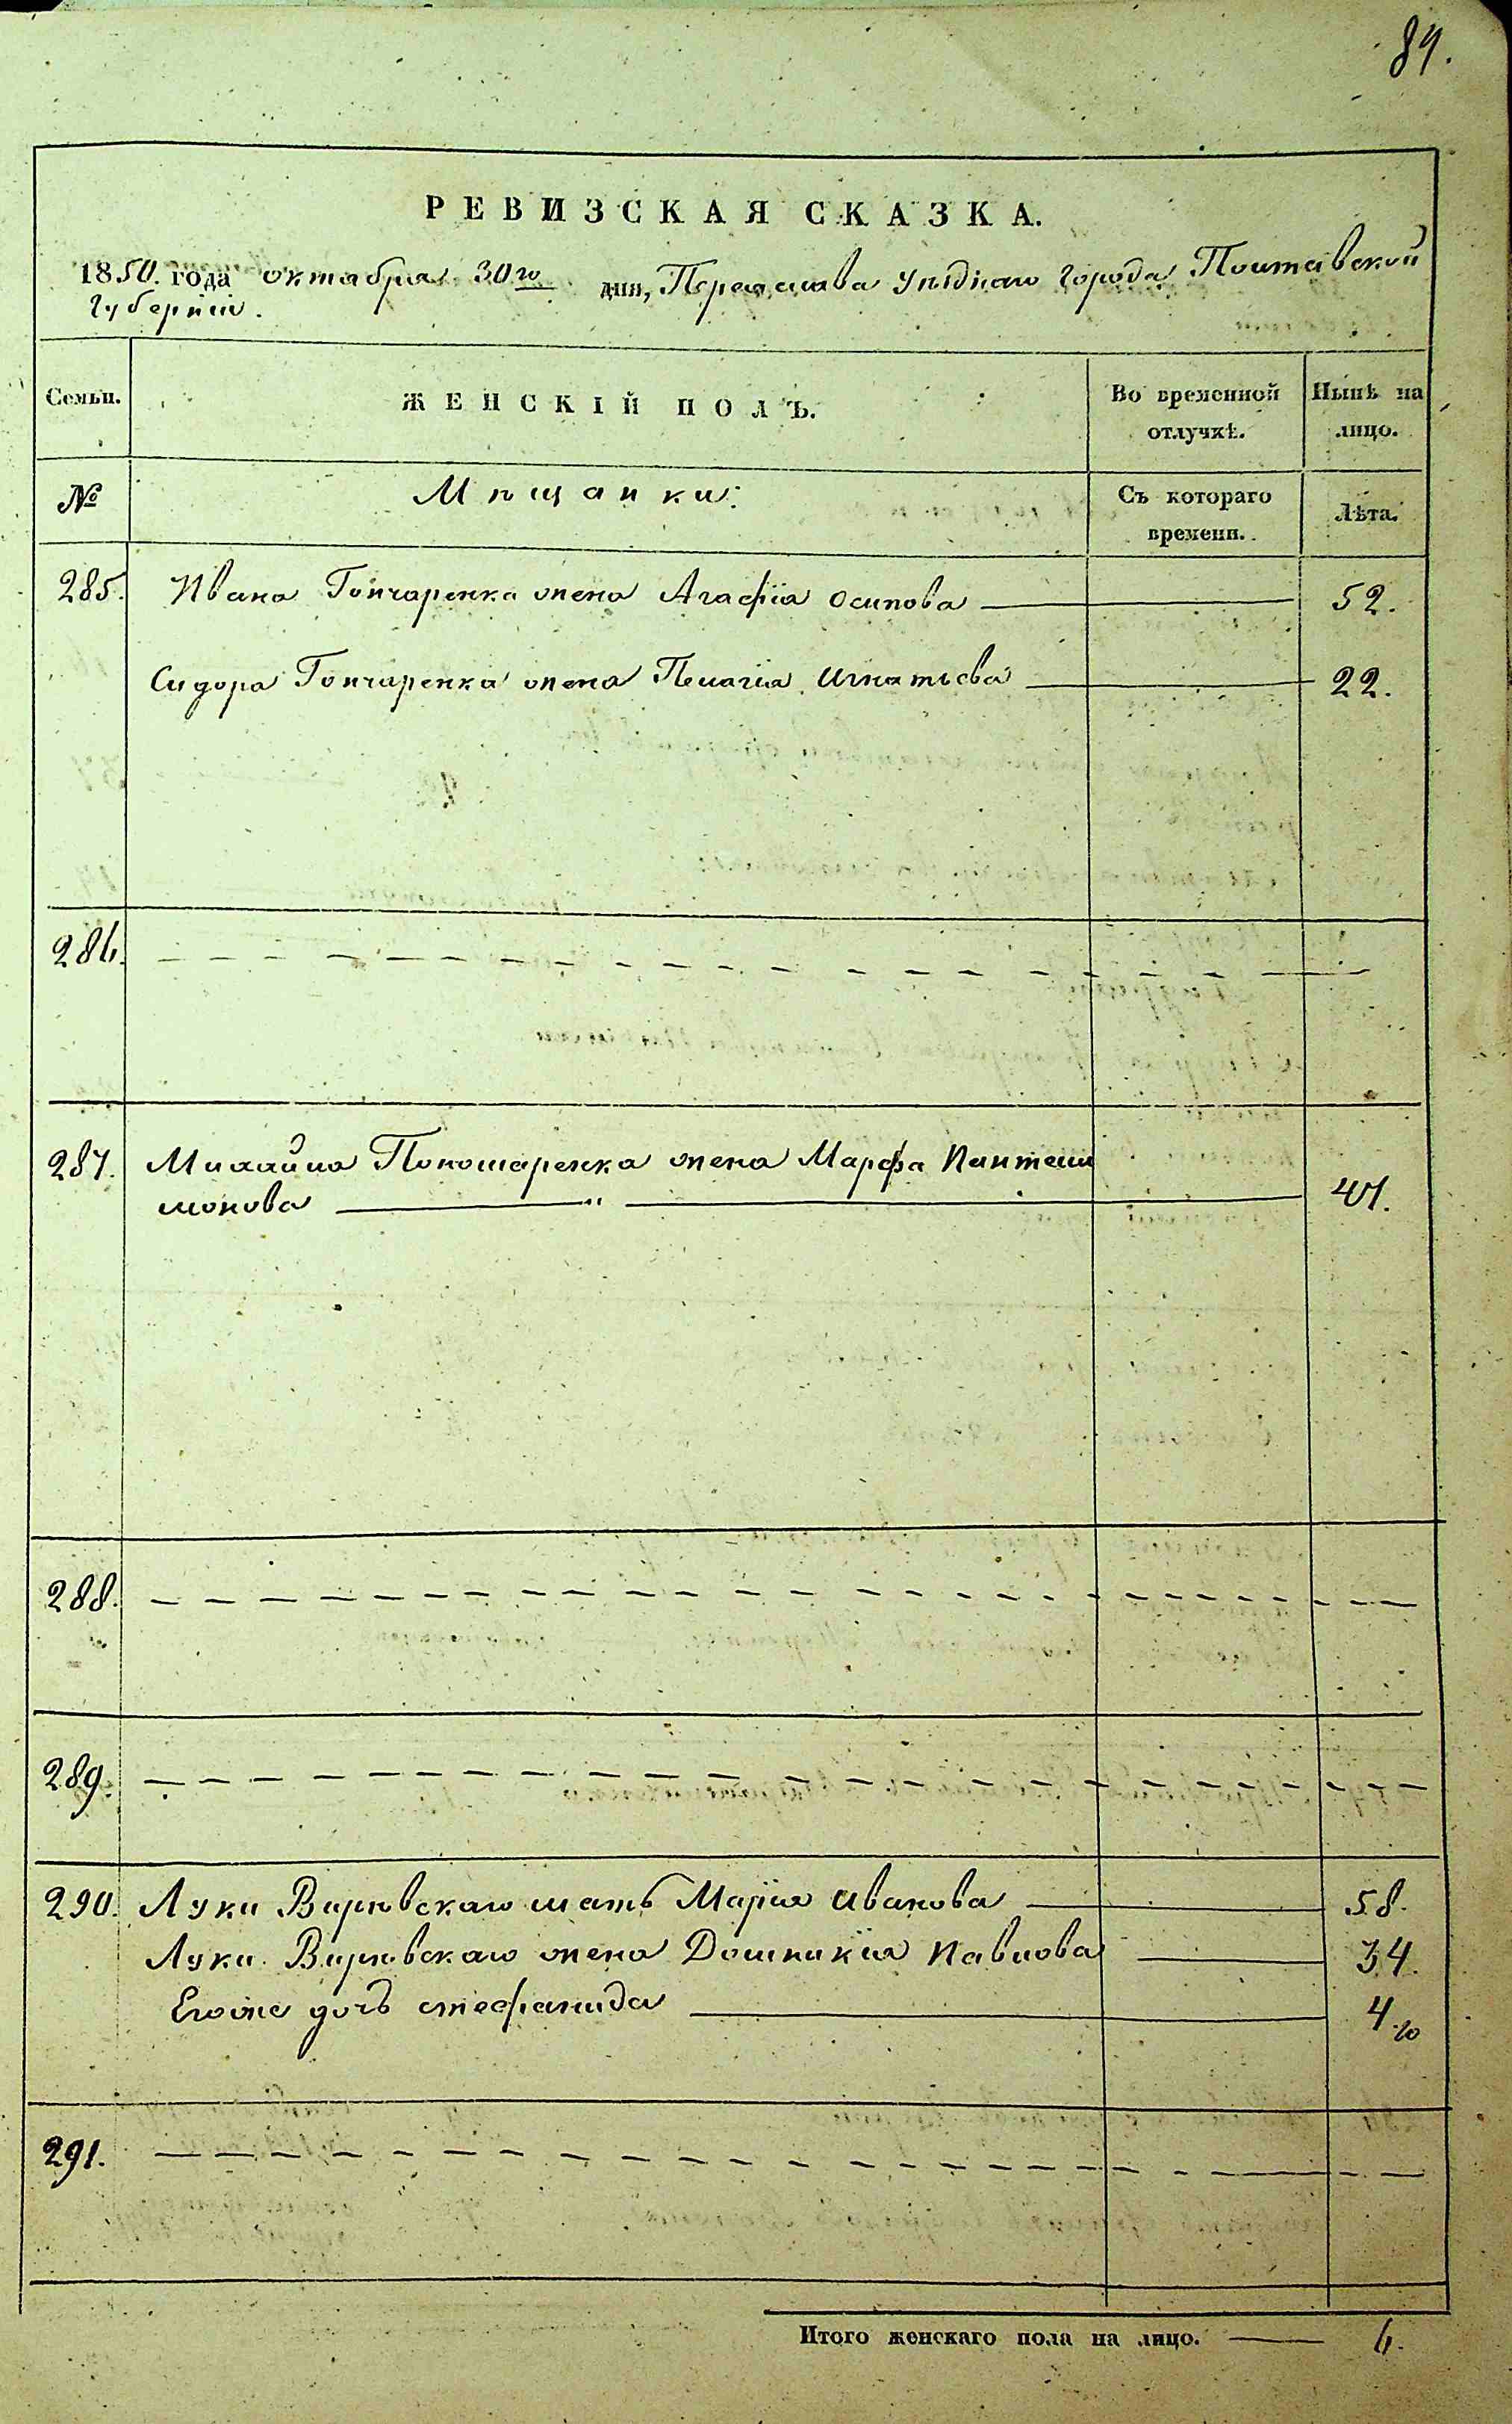 84.
РЕВИЗСКАЯ СКАЗКА.
1850. года октября 30го дня, Переяслава уѣзднаго города Полтавской
Губерніи.
Семьи.
ЖЕНСКІЙ ПОЛЪ.
Во временной
отлучкѣ.
Нынѣ на
лицо.
№
Мѣщанки:
Съ котораго
времени.
Лѣта.
285. Ивана Гончаренка жена Агафія Осипова 52.
Сидора Гончаренка жена Пелагія Игнатьева 22.
286.
287. Михайла Пономаренка жена Марфа Пантели
монова 47.
288.
289.
290. Луки Виръвскаго мать Марія Иванова 58.
Луки Виръвскаго жена Домникія Павлова 34.
Егоже дочь Стефанида 4.
291.
Итого женскаго пола на лицо. 6.